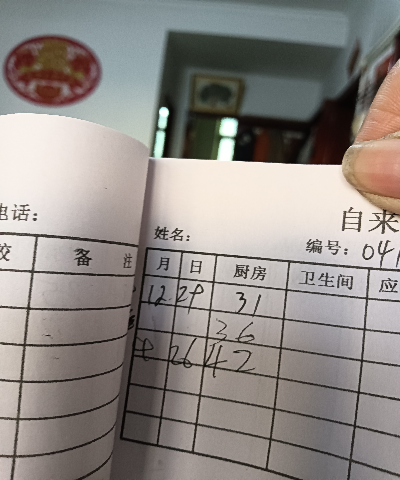 电话：
备 注
自来
姓名：
编号：04
月 日 厨房 卫生间 应
12 29 31
36
26 42